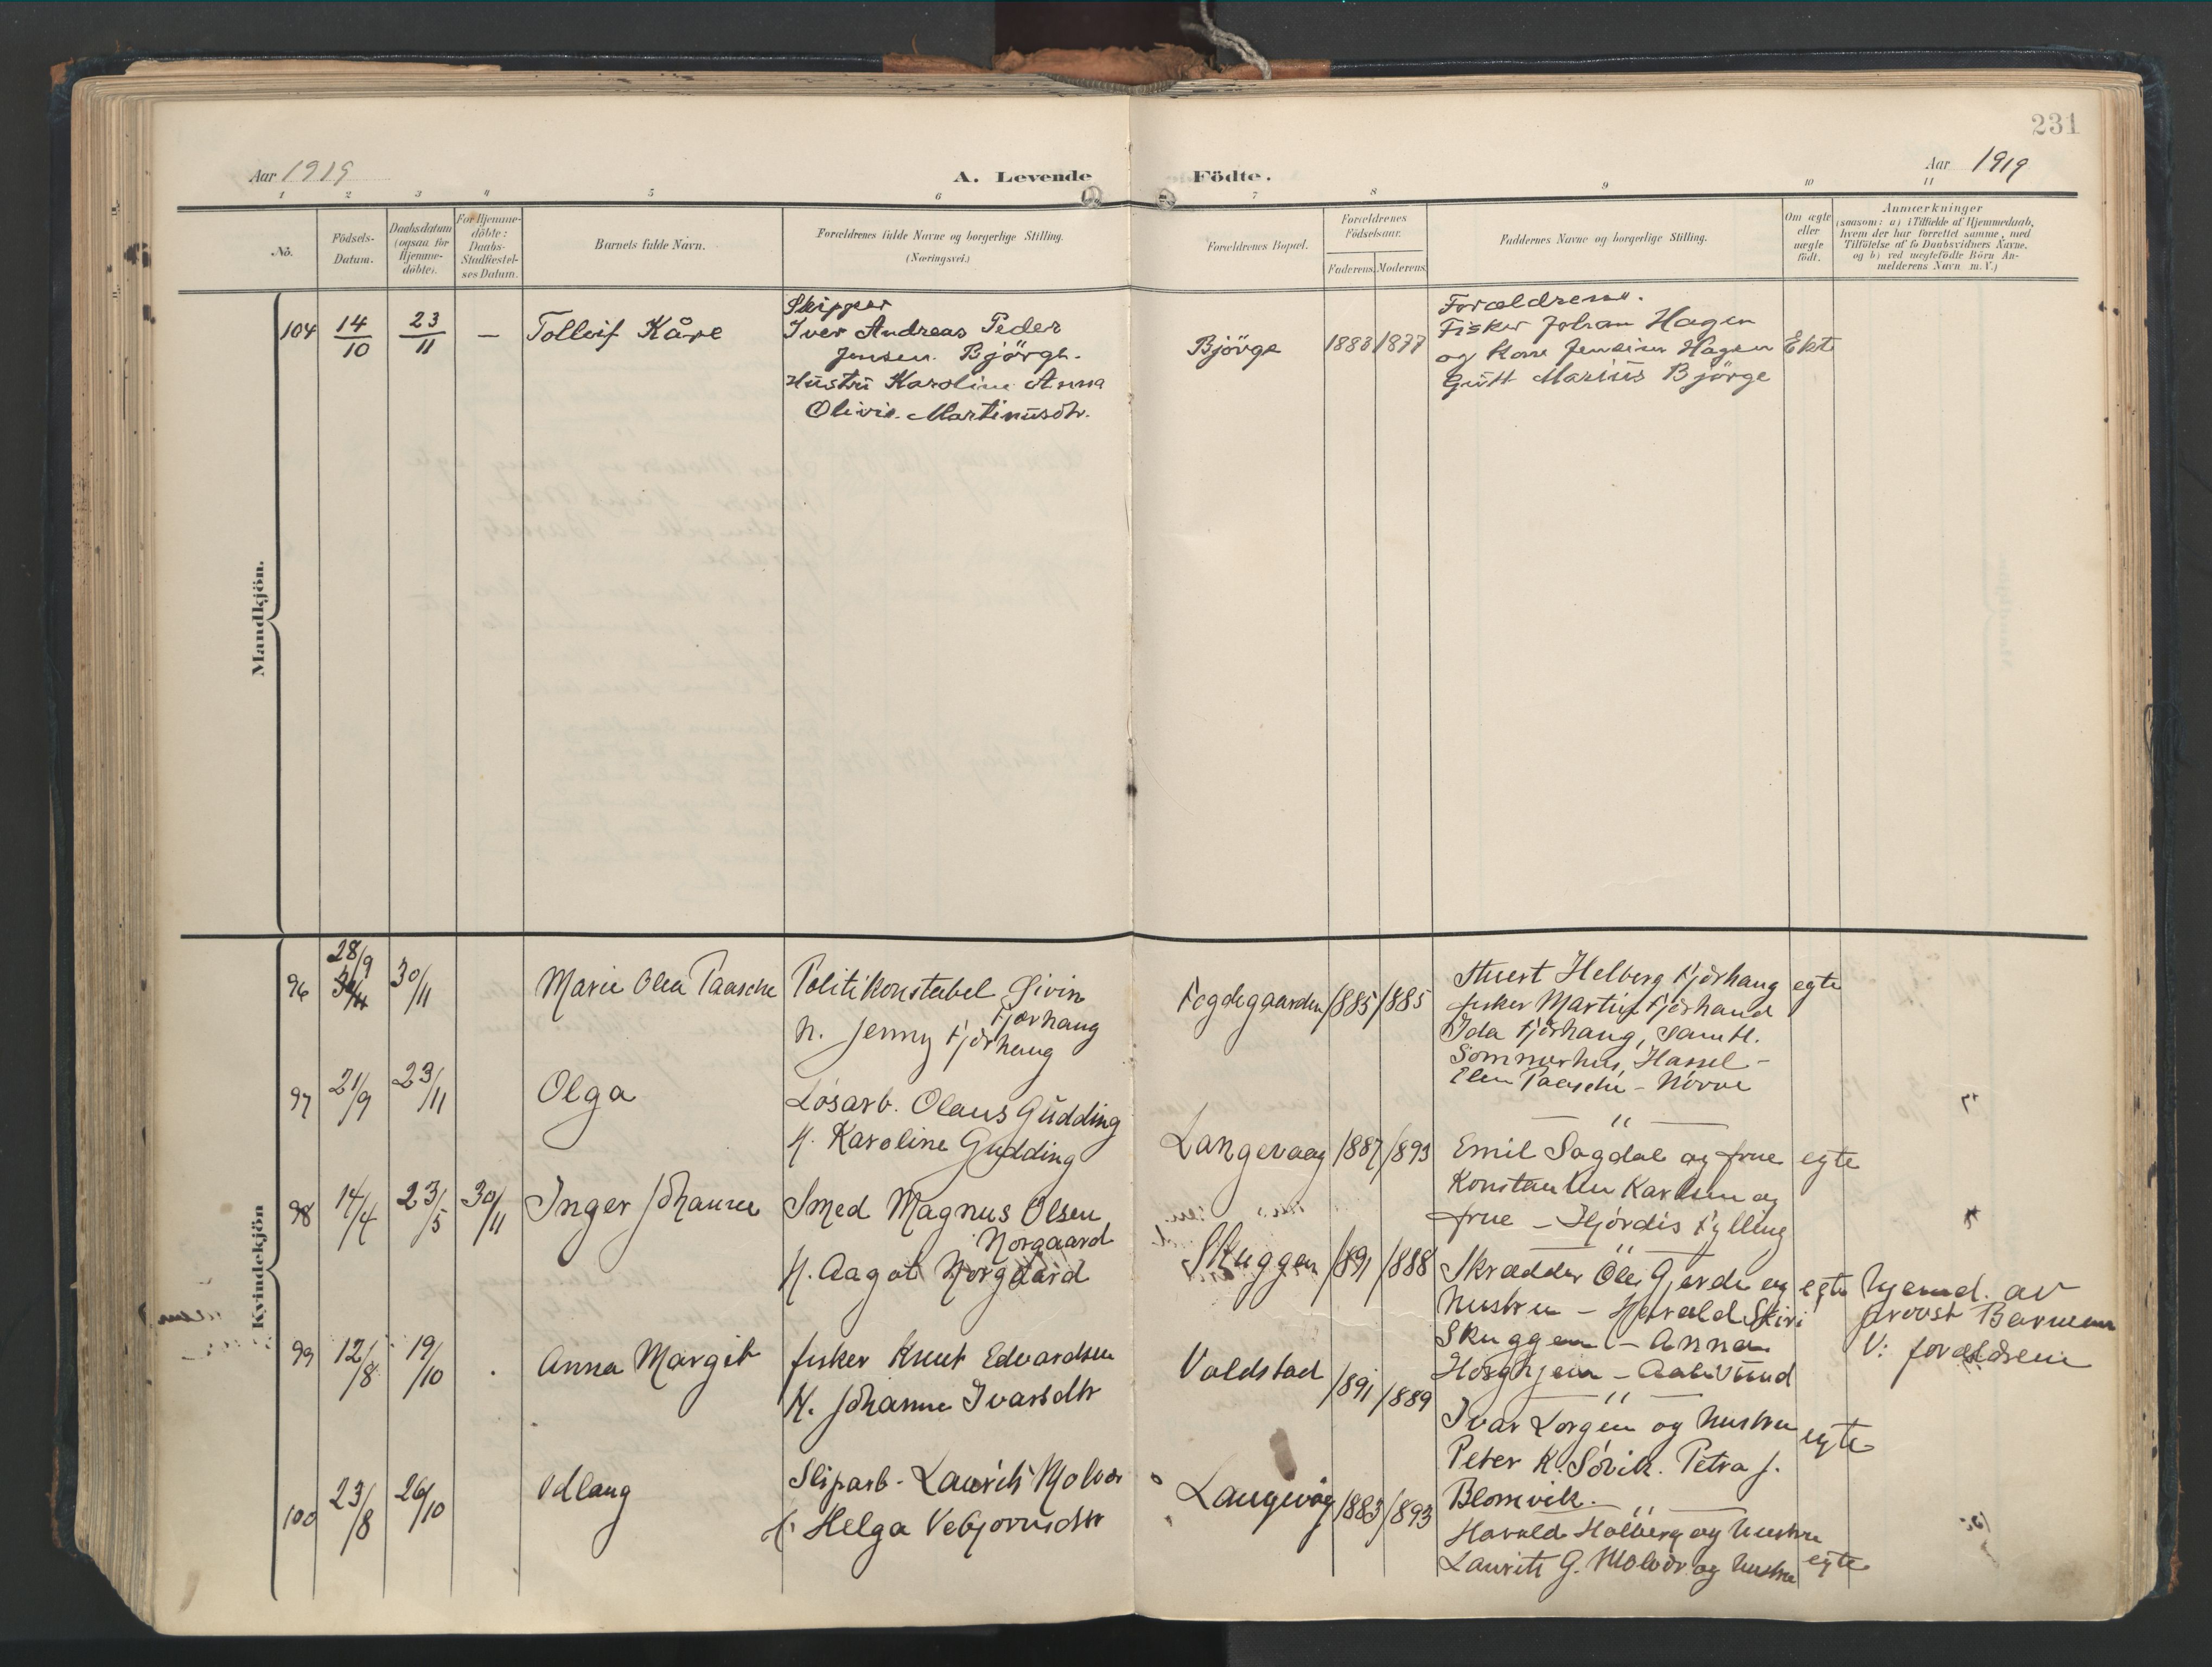 231
Aar 1919
A. Levende Födte.
Aar 1919
1 2 3 4 5 6 7 8 9 10 11
No.
Födsels-Datum.
Daabsdatum (ogsaa for Hjemme-döbte).
For Hjemme-döbte: Daabs-Stadfæstel-ses Datum.
Barnets fulde Navn.
Forældrenes fulde Navne og borgerlige Stilling.
(Næringsvei.)
Forældrenes Bopæl.
Forældrenes Födselsaar.
Faderens. Moderens.
Faddernes Navne og borgerlige Stilling.
Om ægte eller uægte födt.
Anmærkninger
(saasom: a) i Tilfælde af Hjemmedaab,
hvem der har forrettet samme, med
Tilföielse af to Daabsvidners Navne,
og b) ved uægtefödte Börn An-
melderens Navn m. V.)
Mandkjön.
104 14/10 23/11 — Tolleif Kåre
Skipper
Iver Andreas Peder
Jensen Björge.
Hustru Karoline Anna
Olivie Martinusdtr.
Björge 1883 1877
Forældrene.
Fisker Johan Hagen
og Kone Hagen
Gutt Marius Björge
Ekte
Kvindekjön
96 28/9 30/11 Marie Olea Paasche
Politikonstabel Sivin
Fjørhaug
h. Jenny Fjørhaug
Fogdegaarden 1885 1885
Helberg Fjørhaug
fisker Martin Fjørhaug
Ida Fjørhaug, samtl.
Sommerhus, Hassel -
Elen Paasche - Nörve
egte
97 21/9 23/11 Olga
Løsarb. Olaus Gudding
H. Karoline Gudding
Langevaag 1887 1893
— " —
Emil Sagdal og frue
Konstantin Karlsen og
frue - Hjørdis Fylling
egte
98 14/4 23/5 30/11 Inger Johanne
Smed Magnus Olsen
Norgaard
H. Aagot Norgaard
Skuggen 1891 1888
— " —
Skrædder Ole Gjerde og
hustru - Harald Skiri
Skuggen - Anna
egte
hjemd. av
provst Barman
V: forældrene
99 12/8 19/10 . Anna Margit
fisker Knut Edvardsen
H. Johanne Ivarsdtr
Valdstad 1891 1889
— " —
Ivar Lorgen og hustru
Peter K. Søvik. Petra J.
Blomvik.
egte
100 23/8 26/10 Odlaug
Sliparb. Laurits Molvær
H. Helga Vebjørnsdtr
Langevåg 1883 1893
— " —
Harald Holberg og hustru
Laurits G. Molvær og hustru
egte